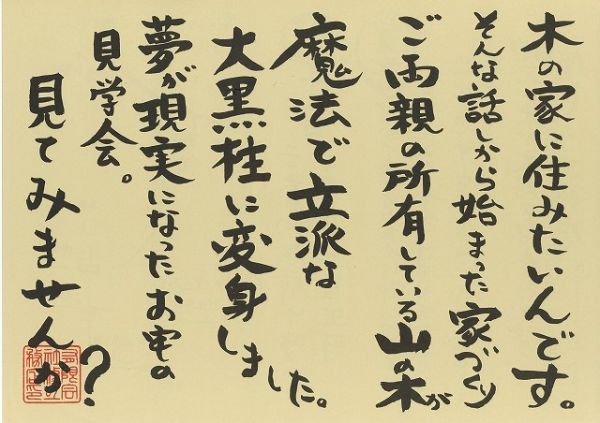 木の家に住みたいんです。
そんな話しから始まった家づくり
ご両親の所有している山の木が
魔法で立派な
大黒柱に変身しました。
夢が現実になったお宅の
見学会。
見てみませんか?